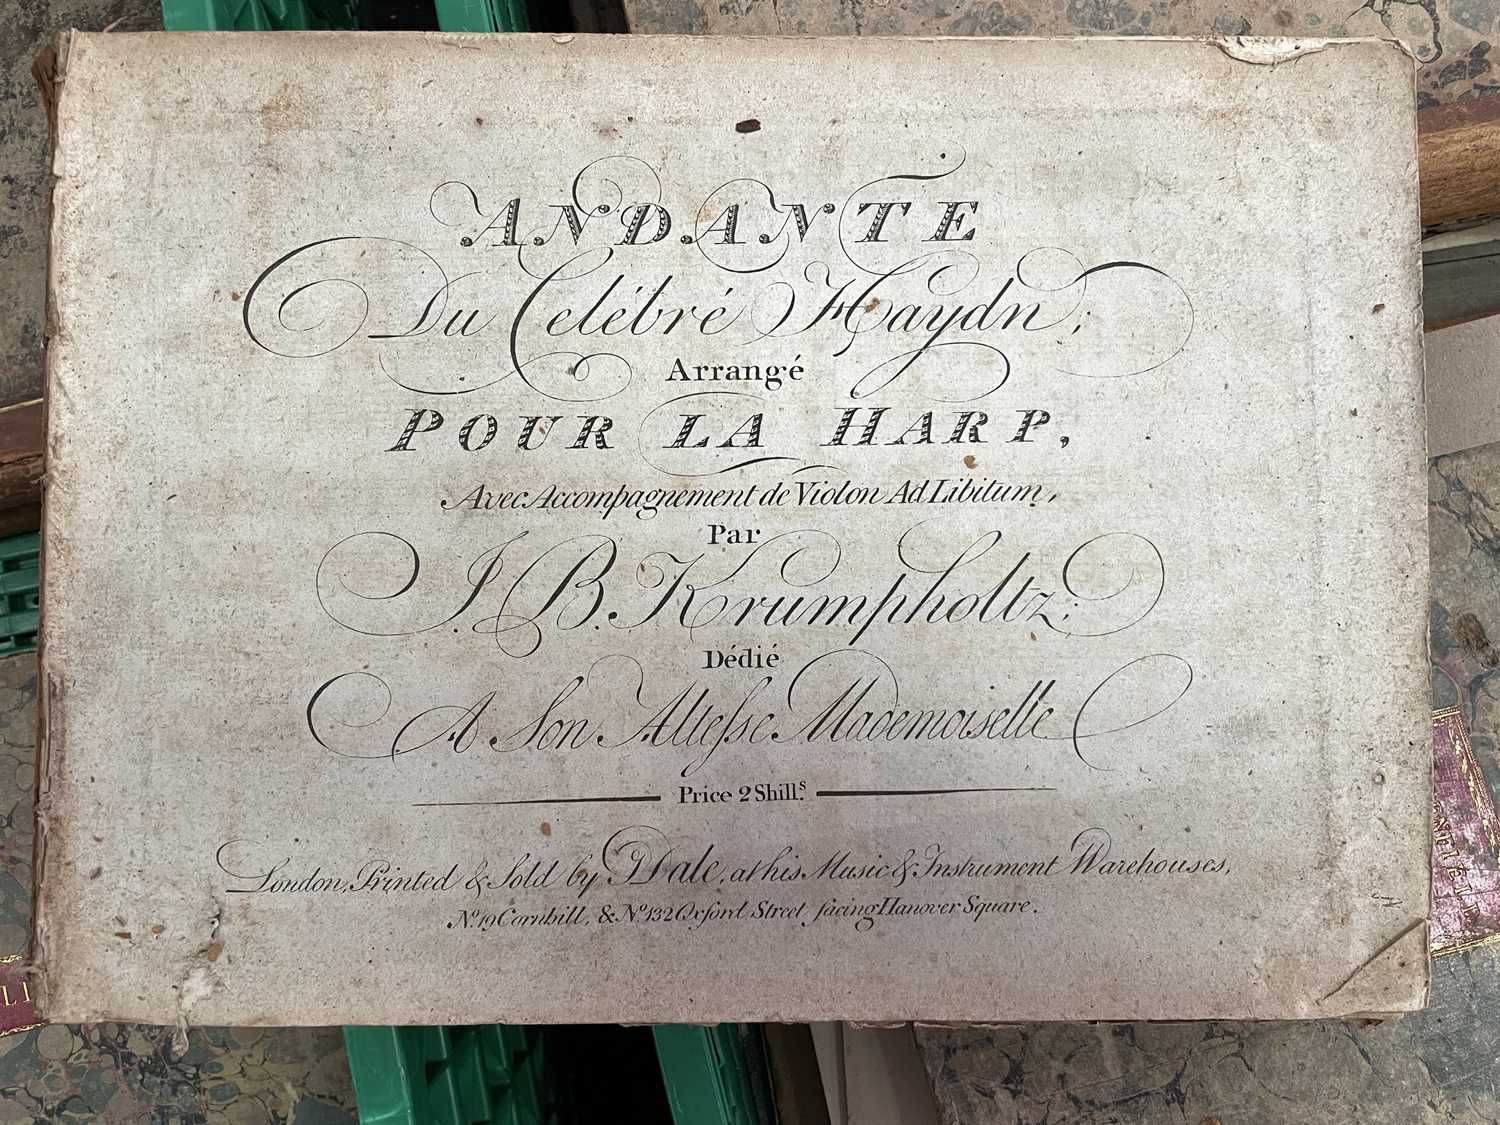 ANDANTE
Du Celébré Haydn;
Arrangé
POUR LA HARP,
Avec Accompagnement de Violon Ad Libitum,
Par
J. B. Krumpholtz;
Dédié
A Son Altesse Mademoiselle
Price 2 Shill.s
London, Printed & Sold by Dale, at his Music & Instrument Warehouses,
No. 19 Cornhill, & No. 132 Oxford Street facing Hanover Square.